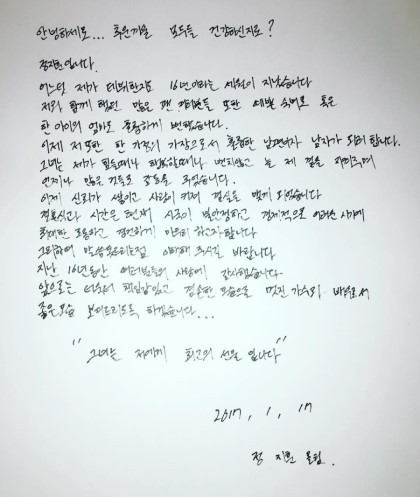 안녕하세요... 추운겨울 모두들 건강하신지요?
정지훈입니다.
어느덧 제가 데뷔한지도 16년이라는 세월이 지났습니다
저와 함께 했던 많은 팬 여러분들 또한 예쁜 숙녀로 혹은
한 아이의 엄마로 훌륭하게 변했습니다.
이제 저 또한 한 가정의 가장으로서 훌륭한 남편이자 남자가 되려 합니다.
그녀는 제가 힘들때나 행복할때나 변치않고 늘 제 곁을 지켜주며
언제나 많은 것들로 감동을 주었습니다.
이제 신뢰가 쌓이고 사랑이 커져 결실을 맺게 되었습니다
결혼식과 시간은 현재 시국이 불안정하고 경제적으로 어려운 시기에
최대한 조용하고 경건하게 마무리 하고자 합니다
그리하여 말씀못드리는점 이해해 주시길 바랍니다
지난 16년동안 여러분들의 사랑에 감사했습니다
앞으로는 더욱더 책임감있고 겸손한 모습으로 멋진 가수와 배우로서
좋은모습 보여드리도록 하겠습니다...
"그녀는 저에게 최고의 선물 입니다"
2017, 1, 17
정 지훈 올림.